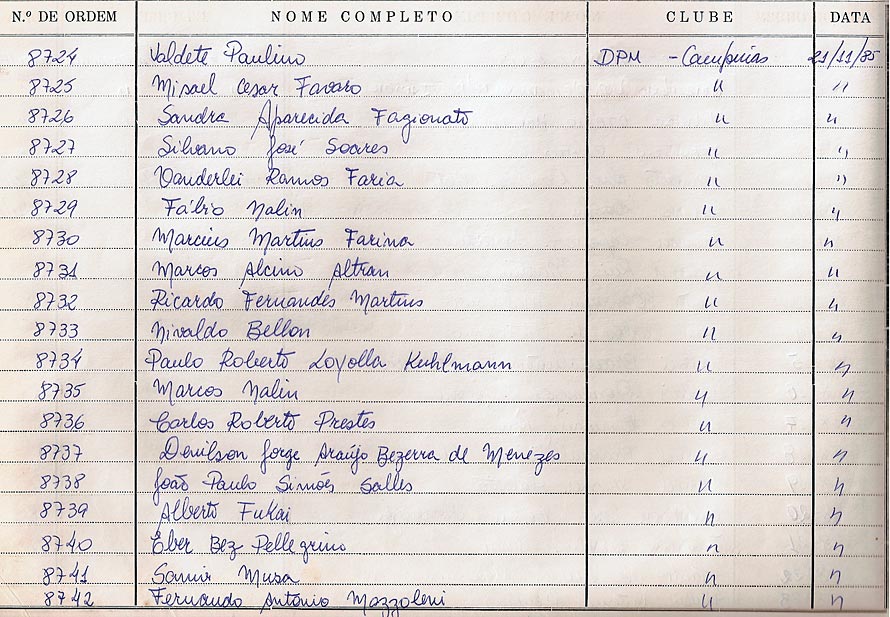 N.º DE ORDEM NOME COMPLETO CLUBE DATA
8724 Valdete Paulino DPM - Campinas 21/11/85
8725 Misael Cesar Favaro " "
8726 Sandra Aparecida Fagionato " "
8727 Silvano José Soares " "
8728 Vanderlei Ramos Faria " "
8729 Fábio Nalin " "
8730 Marcius Martins Farina " "
8731 Marcos Alcino Altran " "
8732 Ricardo Fernandes Martins " "
8733 Nivaldo Bellon " "
8734 Paulo Roberto Loyolla Kuhlmann " "
8735 Marcos Nalin " "
8736 Carlos Roberto Prestes " "
8737 Denilson Jorge Araújo Bezerra de Menezes " "
8738 João Paulo Simões Salles " "
8739 Alberto Fukai " "
8740 Eber Bez Pellegrino " "
8741 Samir Musa " "
8742 Fernando Antonio Mazzoleni " "